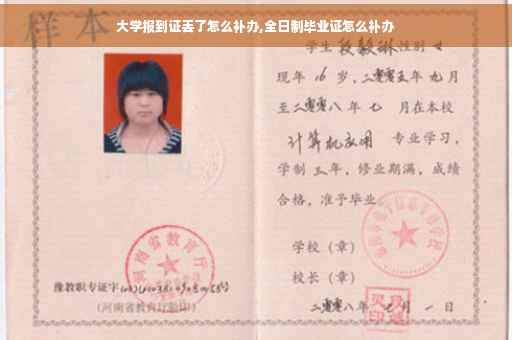 大学报到证丢了怎么补办,全日制毕业证怎么补办
样本
学生段毅琳性别女
现年16岁,二零零五年九月
至二零零八年七月在本校
计算机应用专业学习,
学制三年,修业期满,成绩
合格,准予毕业
学校(章)
校长(章)
二零零八年七月一日
河南省教育厅
豫教职专证字
(河南省教育厅验印)